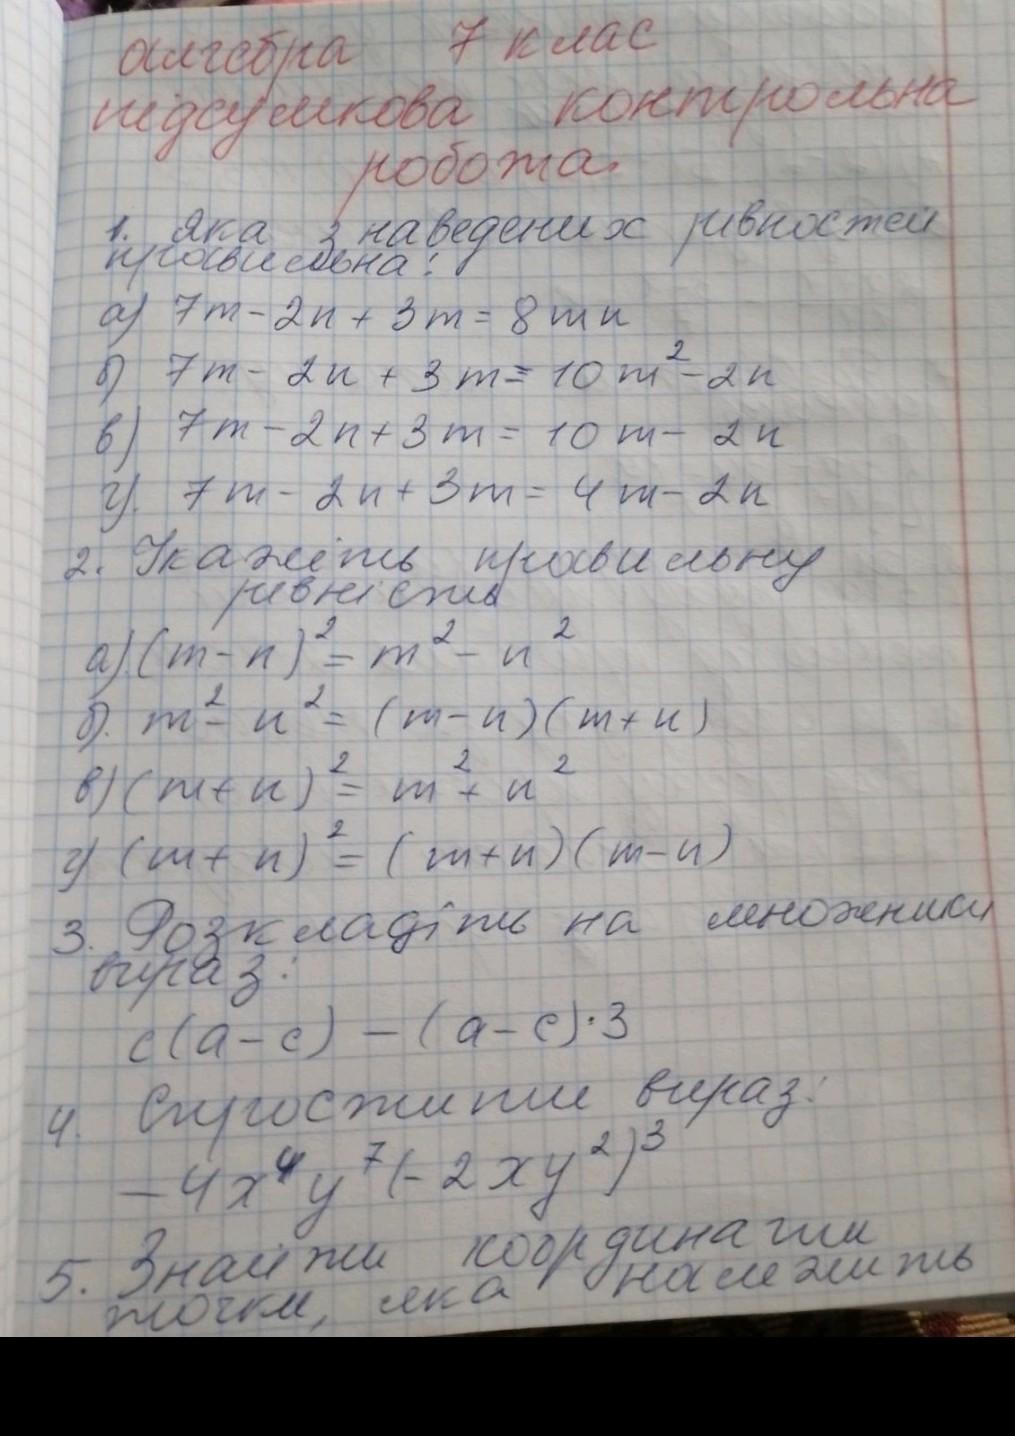 алгебра 7 клас
підсумкова контрольна
робота
1. Яка з наведених рівностей
правильна:
а) 7m - 2n + 3m = 8mn
б) 7m - 2n + 3m = 10m² - 2n
в) 7m - 2n + 3m = 10m - 2n
г). 7m - 2n + 3m = 4m - 2n
2. Укажіть правильну
рівність
а) (m - n)² = m² - n²
б). m² - n² = (m - n)(m + n)
в) (m + n)² = m² + n²
г) (m + n)² = (m + n)(m - n)
3. Розкладіть на множники
вираз:
c(a - c) - (a - c)·3
4. Спростити вираз:
-4x⁴y⁷(-2xy²)³
5. Знайти координати
точки, яка належить